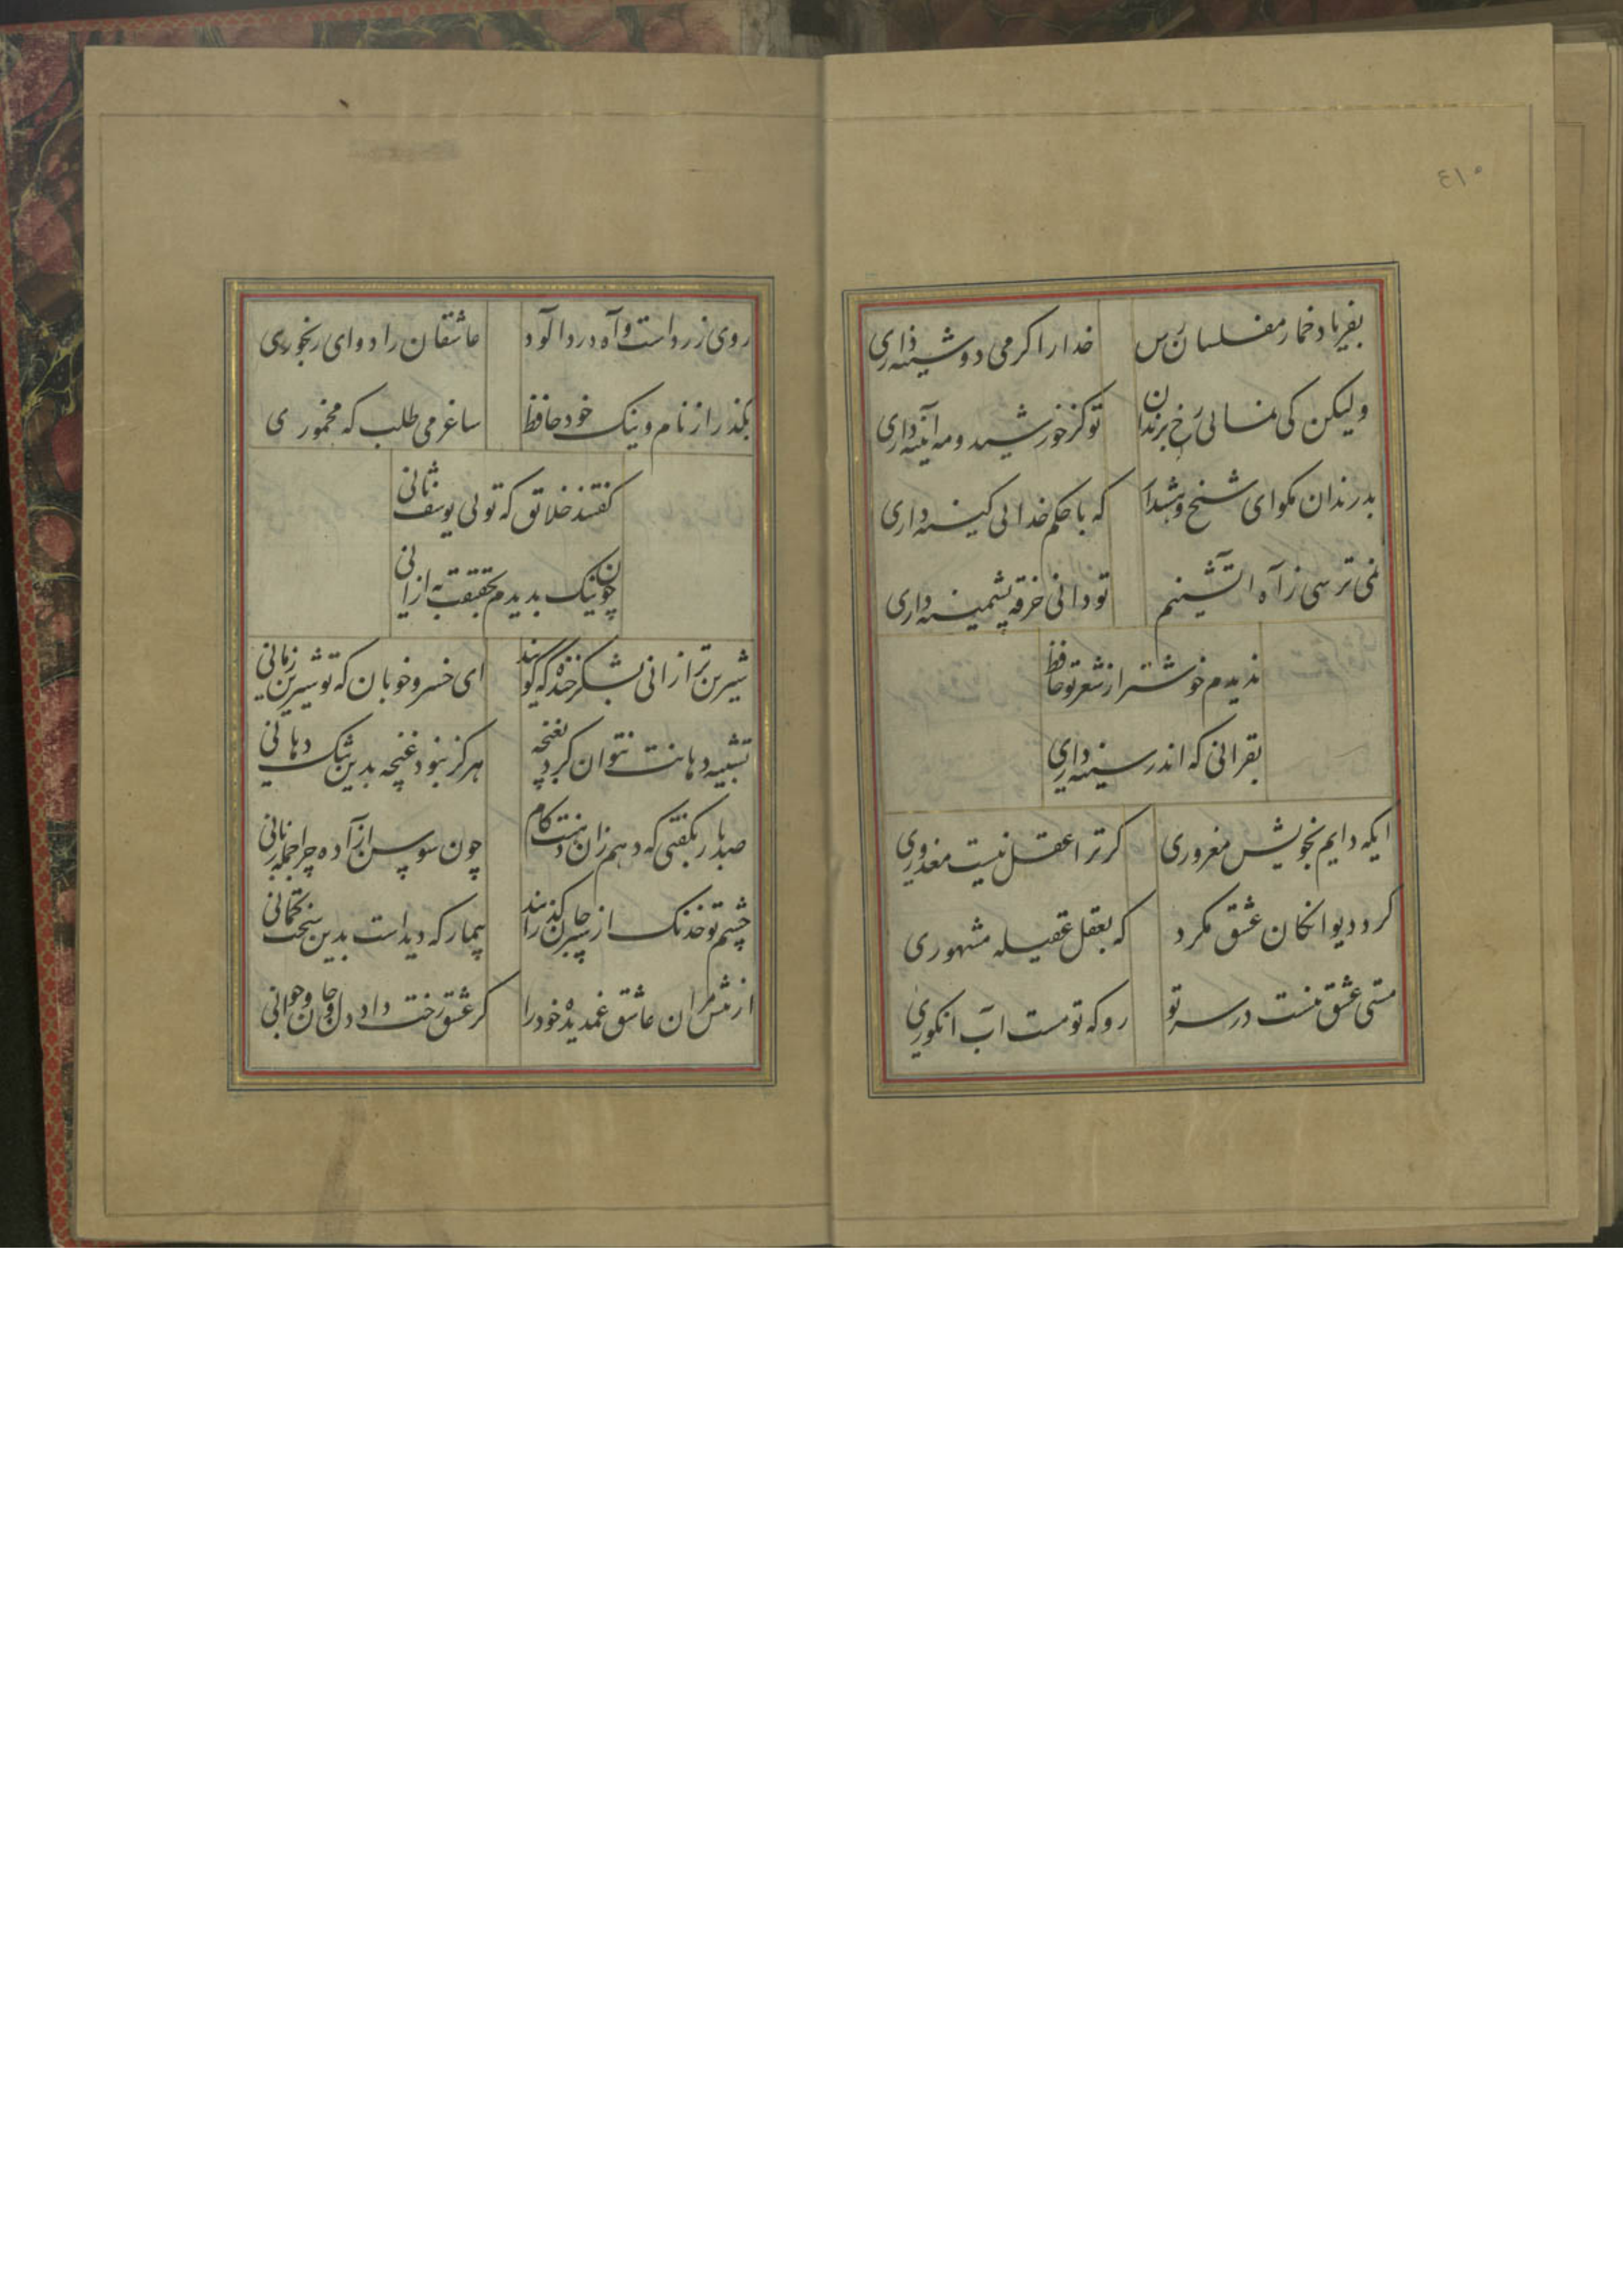 ٤١٥
بفریاد خمار مفلسان رس خدا را کر می دوشینه داری
ولیکن کی نمائی رخ برندان تو کز خورشید و مه آئینه داری
بد رندان مکو ای شیخ و هشدار که با حکم خدائی کینه داری
نمی ترسی ز آه آتشینم تو دانی خرقه پشمینه داری
ندیدم خوشتر از شعر تو حافظ
بقرآنی که اندر سینه داری
ایکه دایم بخویش مغروری کر ترا عقل نیست معذوری
کرد دیوانکان عشق مکرد که بعقل عقیله مشهوری
مستی عشق نیست در سر تو رو که تو مست آب انکوری
روی زرد است و آه درد آلود عاشقان را دوای رنجوری
بکذر از نام و ننک خود حافظ ساغر می طلب که مخموری
کفتند خلائق که توئی یوسف ثانی
چون نیک بدیدم بحقیقت به از آنی
شیرین تر از آنی بشکر خنده که کویند ای خسرو خوبان که تو شیرین زمانی
تشبیه دهانت نتوان کرد بغنچه هرکز نبود غنچه بدین تنک دهانی
صد بار بکفتی که دهم زان دهنت کام چون سوسن آزاده چرا جمله زبانی
چشم تو خدنک از سپر جان کذراند بیمار که دیدست بدین سخت کمانی
از پیش مران عاشق غمدیده خود را کز عشق رخت داد دل و جان و جوانی